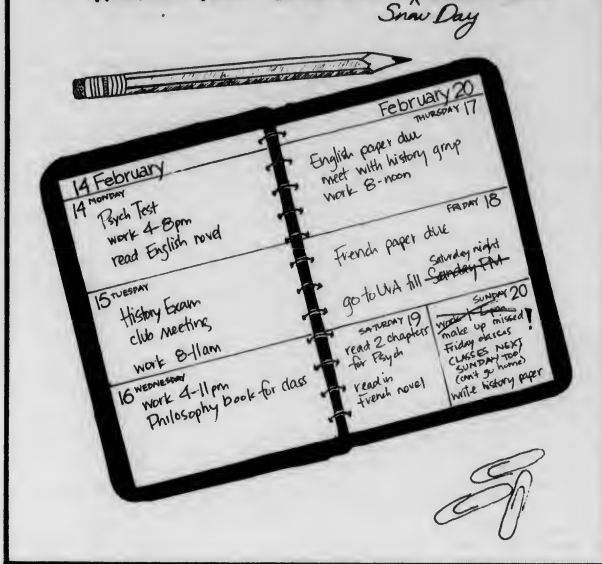 Snow Day
14 February
14 MONDAY
Psych Test
work 4-8pm
read English novel
15 TUESDAY
History Exam
club meeting
work 8-11am
16 WEDNESDAY
work 4-11pm
Philosophy book for class
February 20
THURSDAY 17
English paper due
meet with history group
work 8-noon
FRIDAY 18
French paper due
Saturday night
go to UVA till Sunday PM
SATURDAY 19
read 2 chapters
for Psych
read in
French novel
SUNDAY 20
work
make up missed
Friday classes!
CLASSES NEXT
SUNDAY TOO!
(can't go home)
write history paper